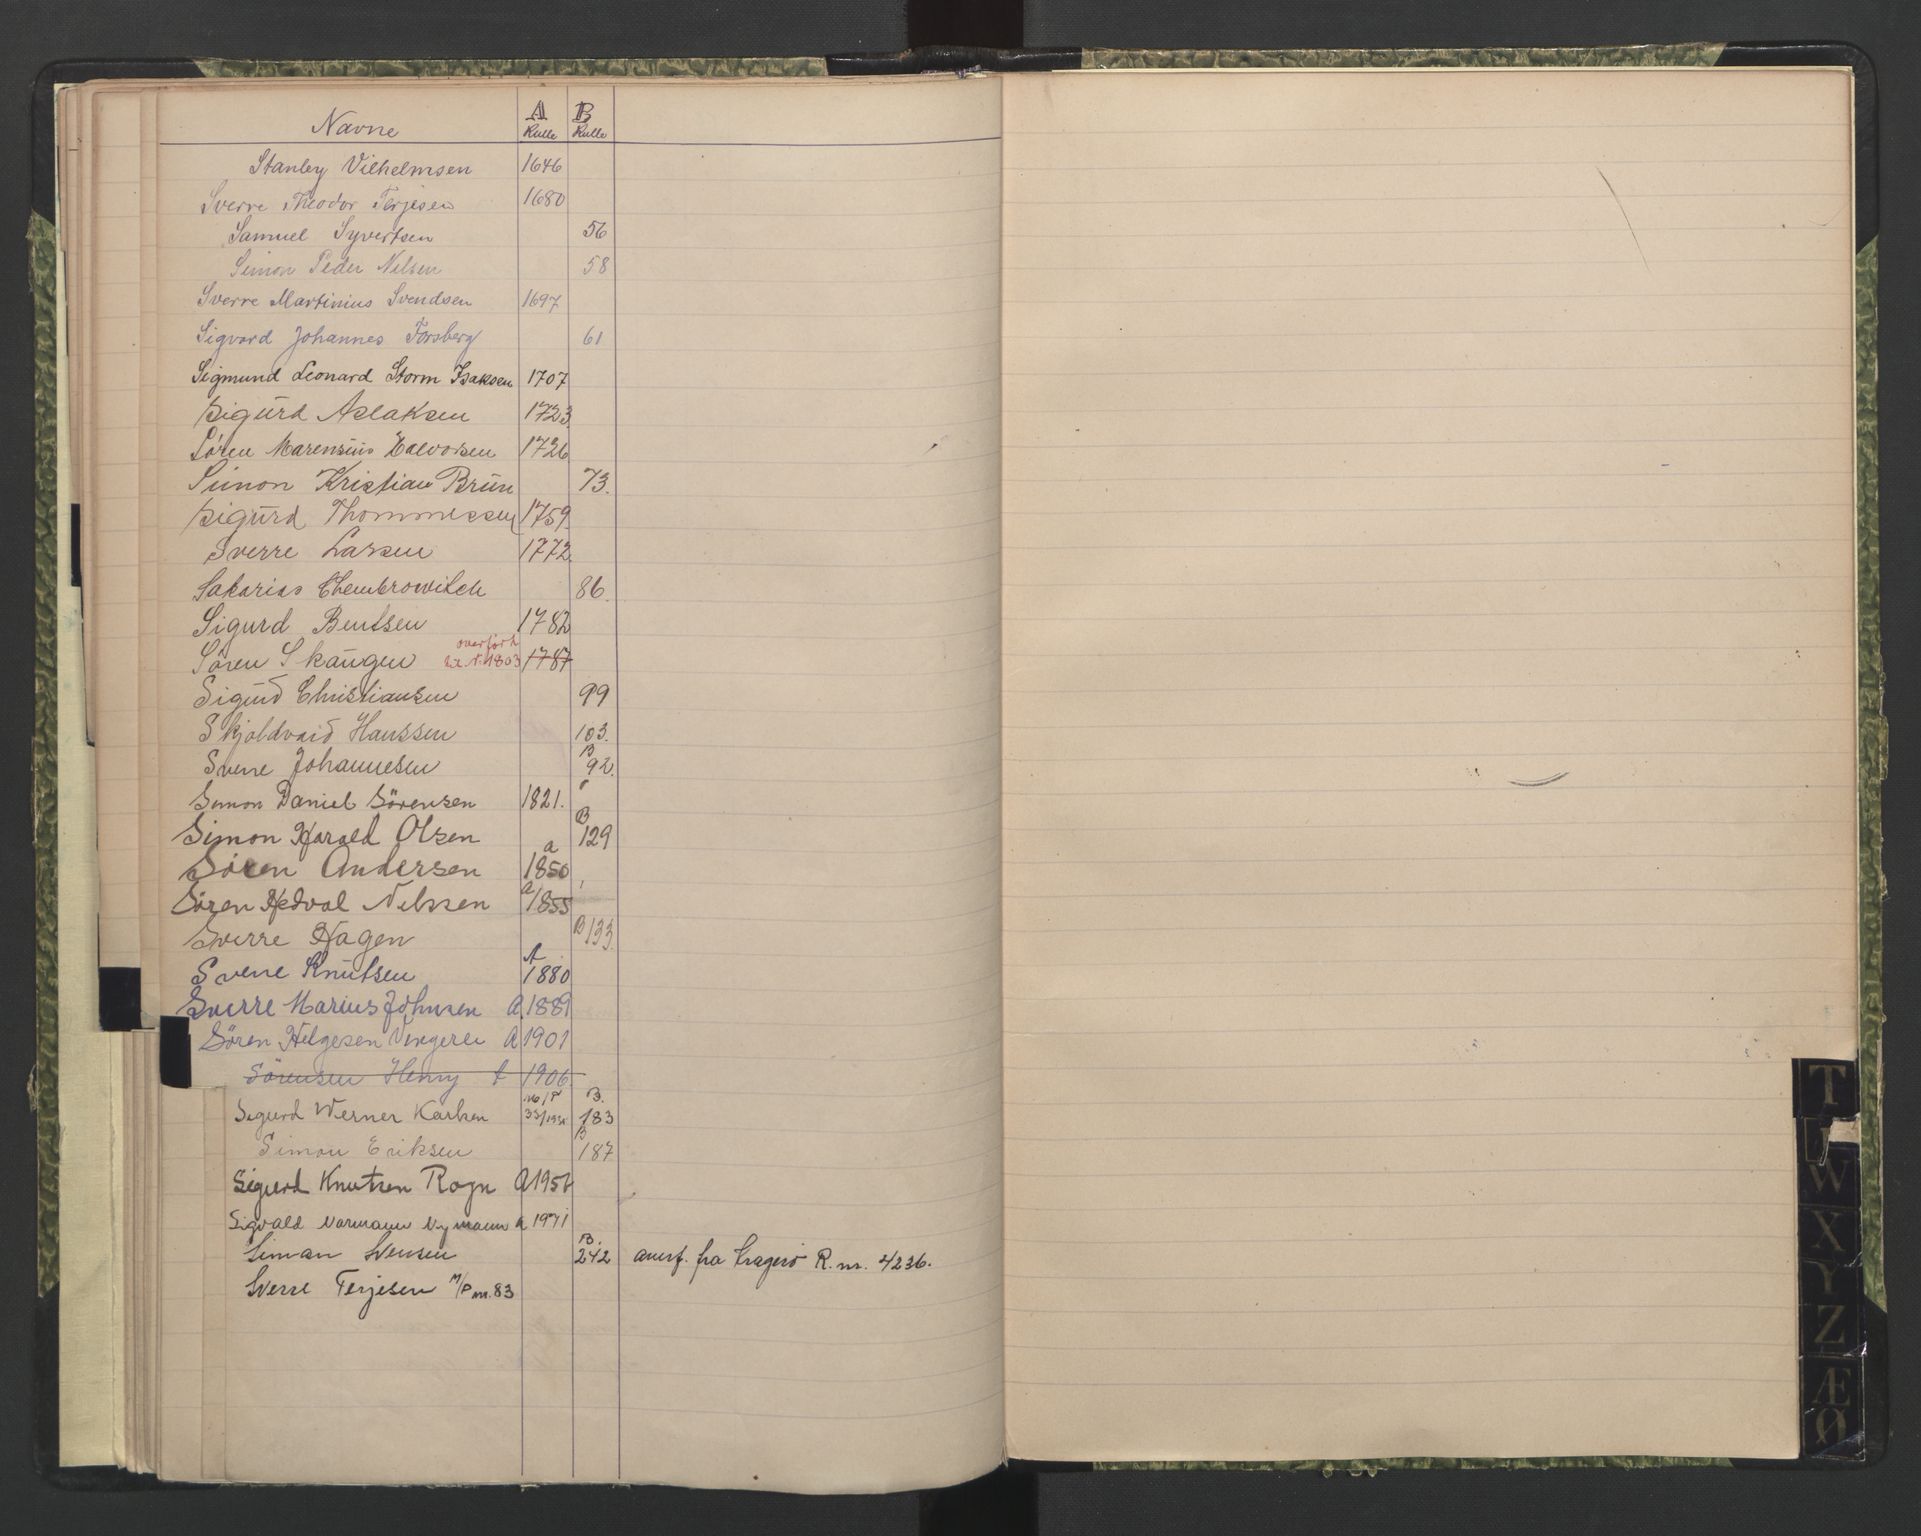 Navne A Rulle B Rulle
Stanley Vilhelmsen 1646
Sverre Theodor Terjesen 1680
Samuel Syvertsen 56
Simon Peder Nilsen 58
Sverre Martinius Svendsen 1697
Sigvard Johannes Forsberg 61
Sigmund Leonard Storm Isaksen 1707
Sigurd Aslaksen 1723
Søren Marensius Halvorsen 1726
Simon Kristian Brun 73.
Sigurd Thommessen 1759.
Sverre Larsen 1772.
Sakarias Chembrowitch 86.
Sigurd Bentsen 1782
overført
Søren Skaugen til N. 1803 1787
Sigurd Christiansen 99
Skjoldvard Hanssen 103.
Sverre Johannesen B 92.
Simon Daniel Sörensen 1821.
Simon Harald Olsen B 129
Sören Andersen a 1850
Sören Hedval Nilssen a 1855
Sverre Hagen B 133.
Sverre Knutsen A 1880
Sverre Marius Johnsen A 1889
Sören Helgesen Vengerei A 1901
Sörensen Henry A 1906.
Sigurd Werner Karlsen B. 183
Simon Eriksen B 187
Sigurd Knutsen Rogn A 1956
Sigvald Normann Nymann A 1971
Siman Svensen B. 242 overf. fra Kragerö R. nr. 4236.
Sverre Terjesen M/P nr. 83
T
W
X
Y
Z
Æ
Ø